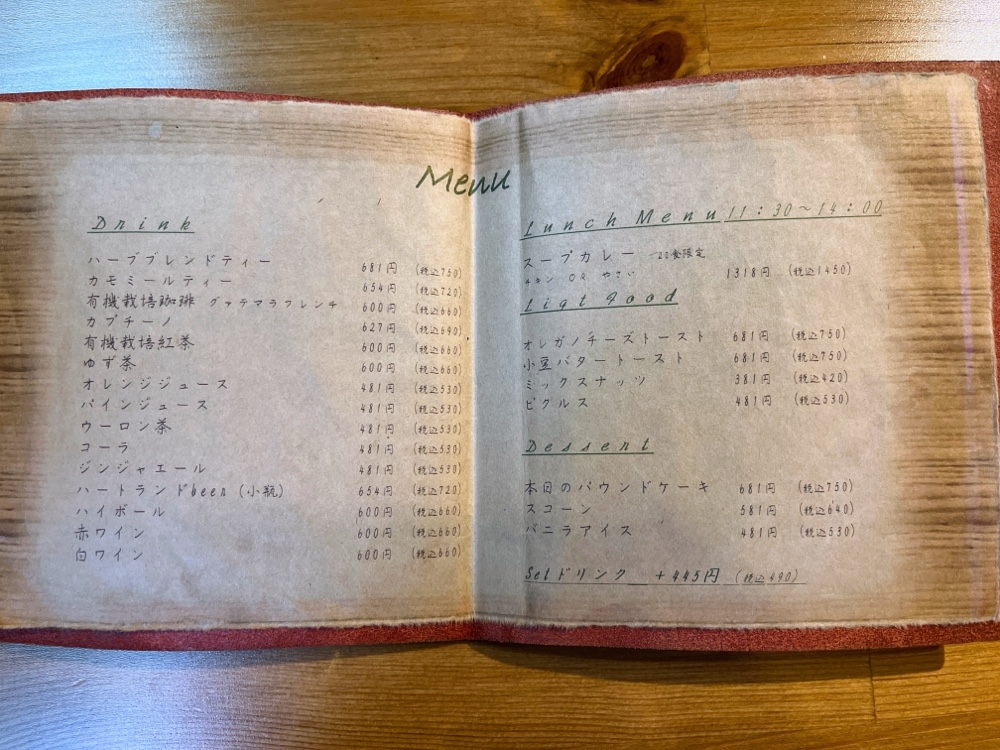 Menu
Drink
ハーブブレンドティー 681円 (税込750)
カモミールティー 654円 (税込720)
有機栽培珈琲 グァテマラフレンチ 600円 (税込660)
カプチーノ 627円 (税込690)
有機栽培紅茶 600円 (税込660)
ゆず茶 600円 (税込660)
オレンジジュース 481円 (税込530)
パインジュース 481円 (税込530)
ウーロン茶 481円 (税込530)
コーラ 481円 (税込530)
ジンジャエール 481円 (税込530)
ハートランドbeer (小瓶) 654円 (税込720)
ハイボール 600円 (税込660)
赤ワイン 600円 (税込660)
白ワイン 600円 (税込660)
Lunch Menu 11:30～14:00
スープカレー 20食限定
チキン or やさい 1318円 (税込1450)
Ligt Food
オレガノチーズトースト 681円 (税込750)
小豆バタートースト 681円 (税込750)
ミックスナッツ 381円 (税込420)
ピクルス 481円 (税込530)
Dessert
本日のパウンドケーキ 681円 (税込750)
スコーン 581円 (税込640)
バニラアイス 481円 (税込530)
Setドリンク +445円 (税込490)